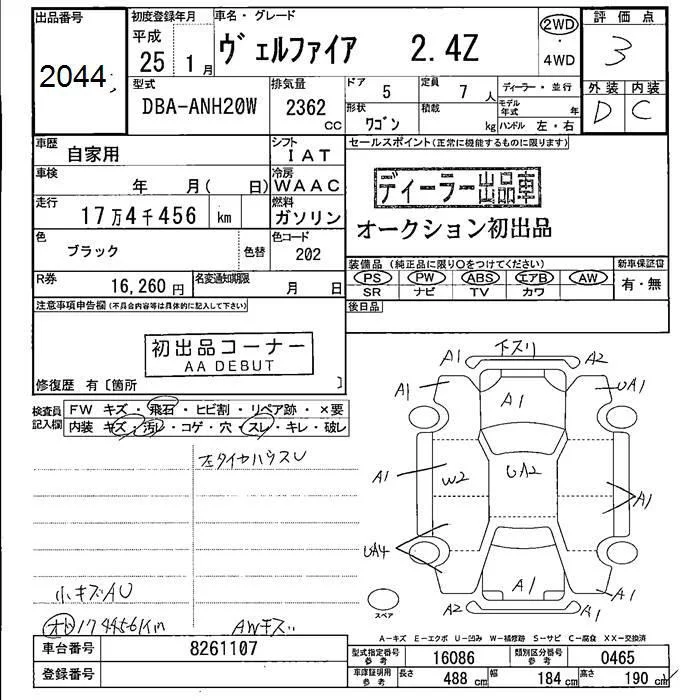 出品番号
2044
初度登録年月
平成
25 1月
車名・グレード
ヴェルファイア 2.4Z
2WD
・
4WD
評価点
3
外装 内装
D C
型式
DBA-ANH20W
排気量
2362
CC
ドア
5
定員
7人
形状
ワゴン
積載
kg
ディーラー・並行
モデル年式 年
ハンドル 左・右
車歴
自家用
シフト
IAT
車検
年 月( 日)
冷房
WAAC
走行
17万4千456 km
燃料
ガソリン
色
ブラック
色替
色コード
202
R券
16,260円
名変通知期限
月 日
セールスポイント(正常に機能するものに限ります)
ディーラー出品車
オークション初出品
装備品(純正品に限り○をつけてください)
新車保証書
PS PW ABS エアB AW
SR ナビ TV カワ
有・無
後日品
注意事項申告欄(不具合内容等は具体的に記入して下さい)
初出品コーナー
AA DEBUT
修復歴 有〔箇所 〕
検査員
記入欄
FW キズ・飛石・ヒビ割・リペア跡・×要
内装 キズ・汚レ・コゲ・穴・スレ・キレ・破レ
小キズAU
174456Km
AWキズ
A1 下スリ A2
A1 A1 UA1
A1 W2 UA2 A1
UA4
A1 A1
A2 A1
スペア
A-キズ E-エクボ U-凹み W-補修跡 S-サビ C-腐食 XX-交換済
車台番号
8261107
登録番号
型式指定番号
参考
16086
類別区分番号
参考
0465
車庫証明用
参考
長さ 488cm
幅 184cm
高さ 190cm